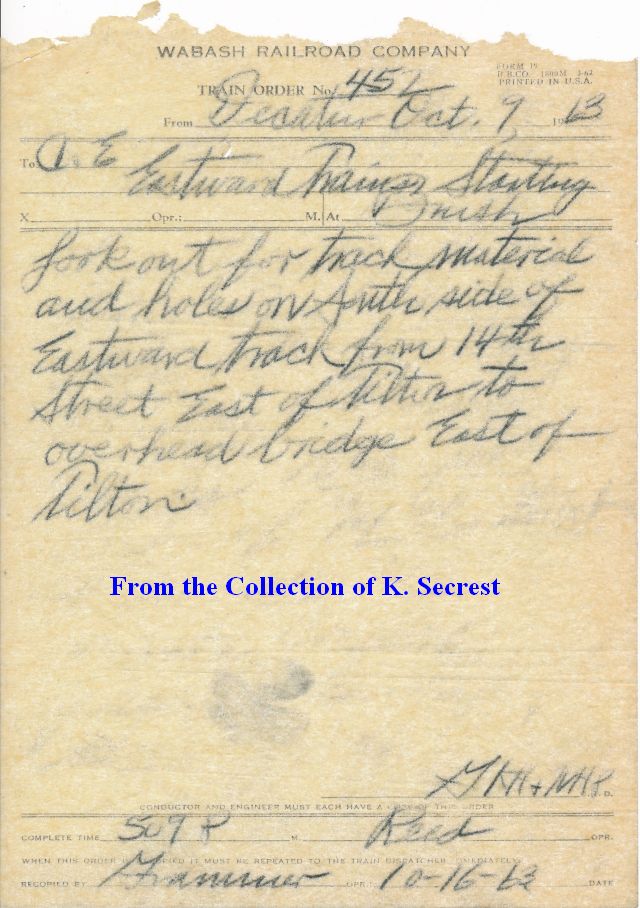 WABASH RAILROAD COMPANY
FORM 19
D.B.CO. 1800M 3-62
PRINTED IN U.S.A.
TRAIN ORDER No. 452
From Decatur Oct. 9 1963
To: C. & E
Eastward Trains Starting
X Opr.: M. At
Look out for track material
and holes on South side of
Eastward track from 14th
Street East of Tilton to
overhead bridge East of
Tilton.
From the Collection of K. Secrest
C.T.D.
CONDUCTOR AND ENGINEER MUST EACH HAVE A COPY OF THIS ORDER
COMPLETE TIME 509 P M. Reed OPR.
WHEN THIS ORDER IS COPIED IT MUST BE REPEATED TO THE TRAIN DISPATCHER IMMEDIATELY
RECOPIED BY Grammer OPR.: 10-16-63 DATE